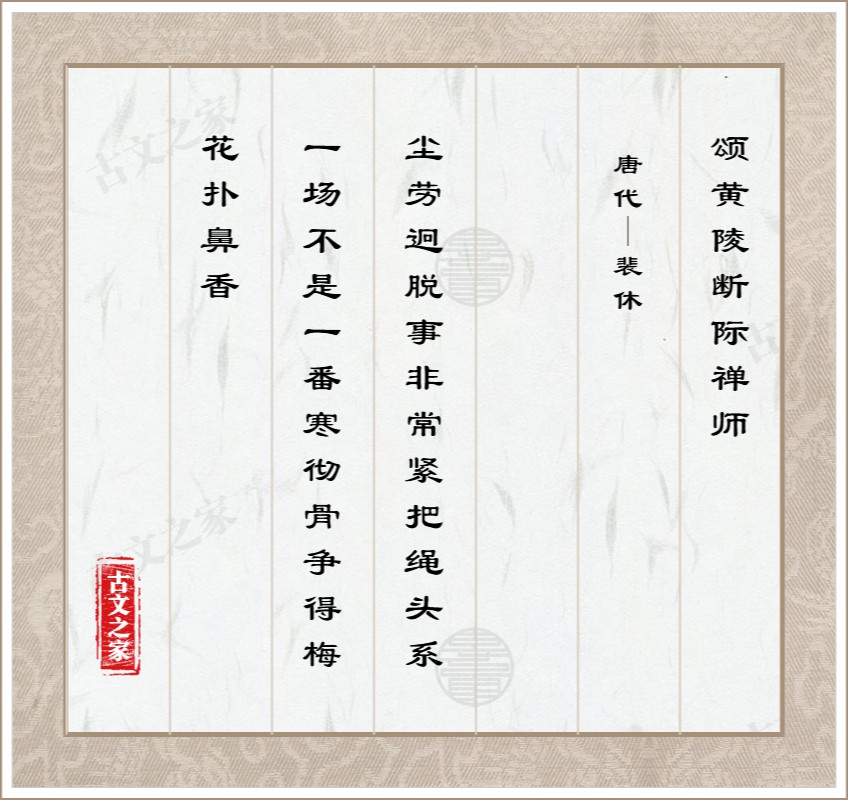 颂黄陵断际禅师
唐代—裴休
尘劳迥脱事非常紧把绳头系
一场不是一番寒彻骨争得梅
花扑鼻香
古文之家
古文之家
古文之家